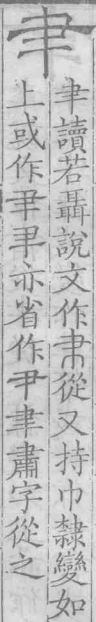 ⺻
聿讀若聶說文作𦘒從又持巾隸變如
上或作肀肀亦省作尹聿肅字從之